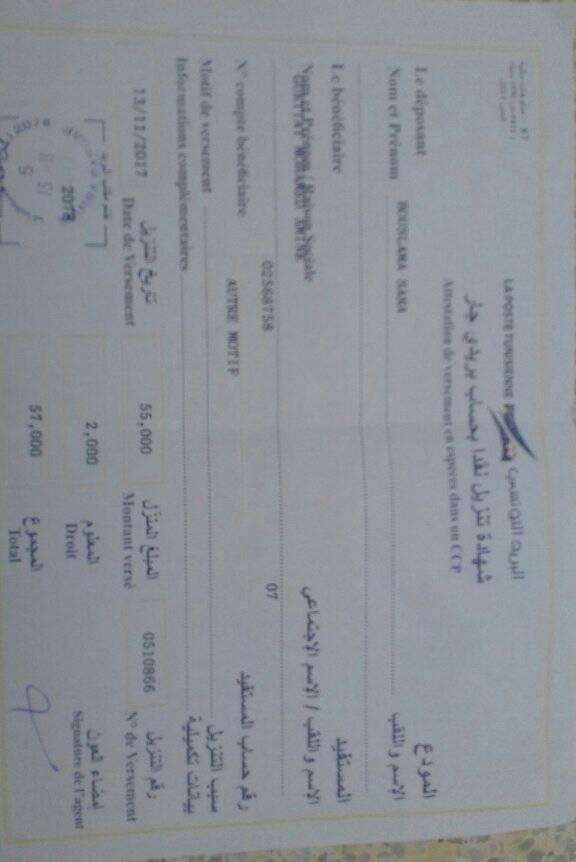 LA POSTE TUNISIENNE البريد التونسي
شهادة تنزيل نقدا بحساب بريدي جار
Attestation de versement en espèces dans un CCP
Le déposant المودع
Nom et Prénom BOUSLAMA SANA الإسم و اللقب
Le bénéficiaire المستفيد
Nom et Prénom / Raison Sociale الإسم واللقب / الاسم الاجتماعي
N° compte bénéficiaire 02568758 07 رقم حساب المستفيد
Motif de versement AUTRE MOTIF سبب التنزيل
Informations complémentaires بيانات تكميلية
13/11/2017 تاريخ التنزيل 55,000 المبلغ المنزّل 0510866 رقم التنزيل
Date de Versement Montant versé N° de Versement
2,000 المعلوم
Droit
إمضاء العون
Signature de l'agent
57,000 المجموع
Total